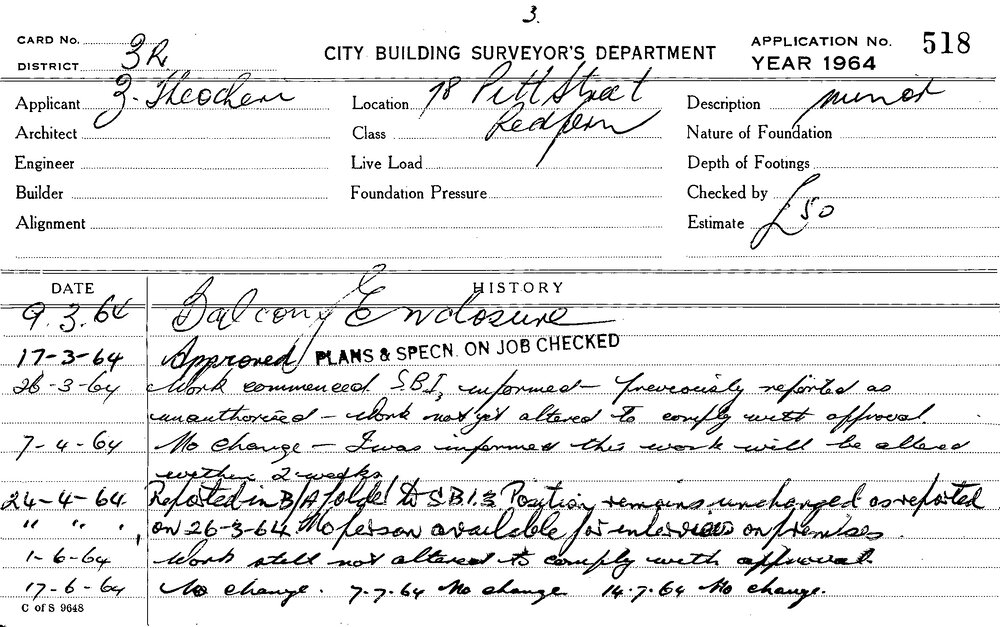 3.
CARD No.
DISTRICT 3R
CITY BUILDING SURVEYOR'S DEPARTMENT
APPLICATION No. 518
YEAR 1964
Applicant Z. Theocheri
Location 78 Pitt Street
Description minor
Architect
Class Redfern
Nature of Foundation
Engineer
Live Load
Depth of Footings
Builder
Foundation Pressure
Checked by
Alignment
Estimate £50
DATE HISTORY
9.3.64 Balcony Enclosure
17-3-64 Approved PLANS & SPECN. ON JOB CHECKED
26-3-64 Work commenced S.B.I. informed - previously reported as
unauthorised - work not yet altered to comply with approval.
7-4-64 No change - I was informed this work will be altered
within 2 weeks
24-4-64 Reported in B/A folder to S.B.I.3 Position remains unchanged as reported
" " " on 26-3-64. No person available for interview on premises.
1-6-64 Work still not altered to comply with approval.
17-6-64 No change. 7-7-64 No change 14.7.64 No change.
C of S 9648